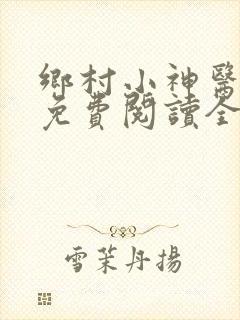 鄉村小神醫
免費閱讀全
雪茉丹揚